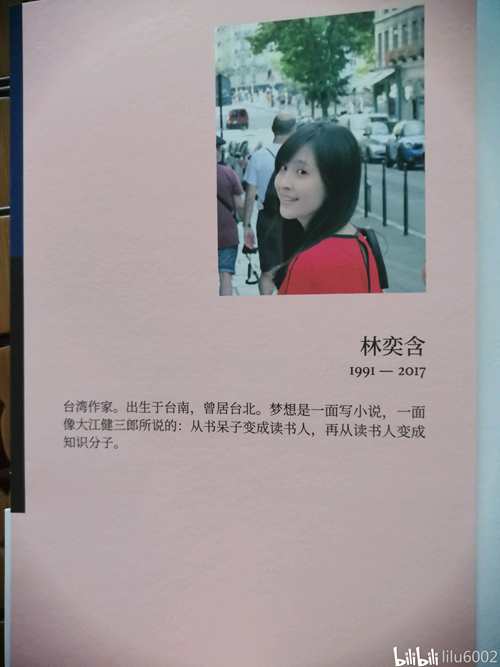 林奕含
1991 — 2017
台湾作家。出生于台南，曾居台北。梦想是一面写小说，一面
像大江健三郎所说的：从书呆子变成读书人，再从读书人变成
知识分子。
bilibili lilu6002